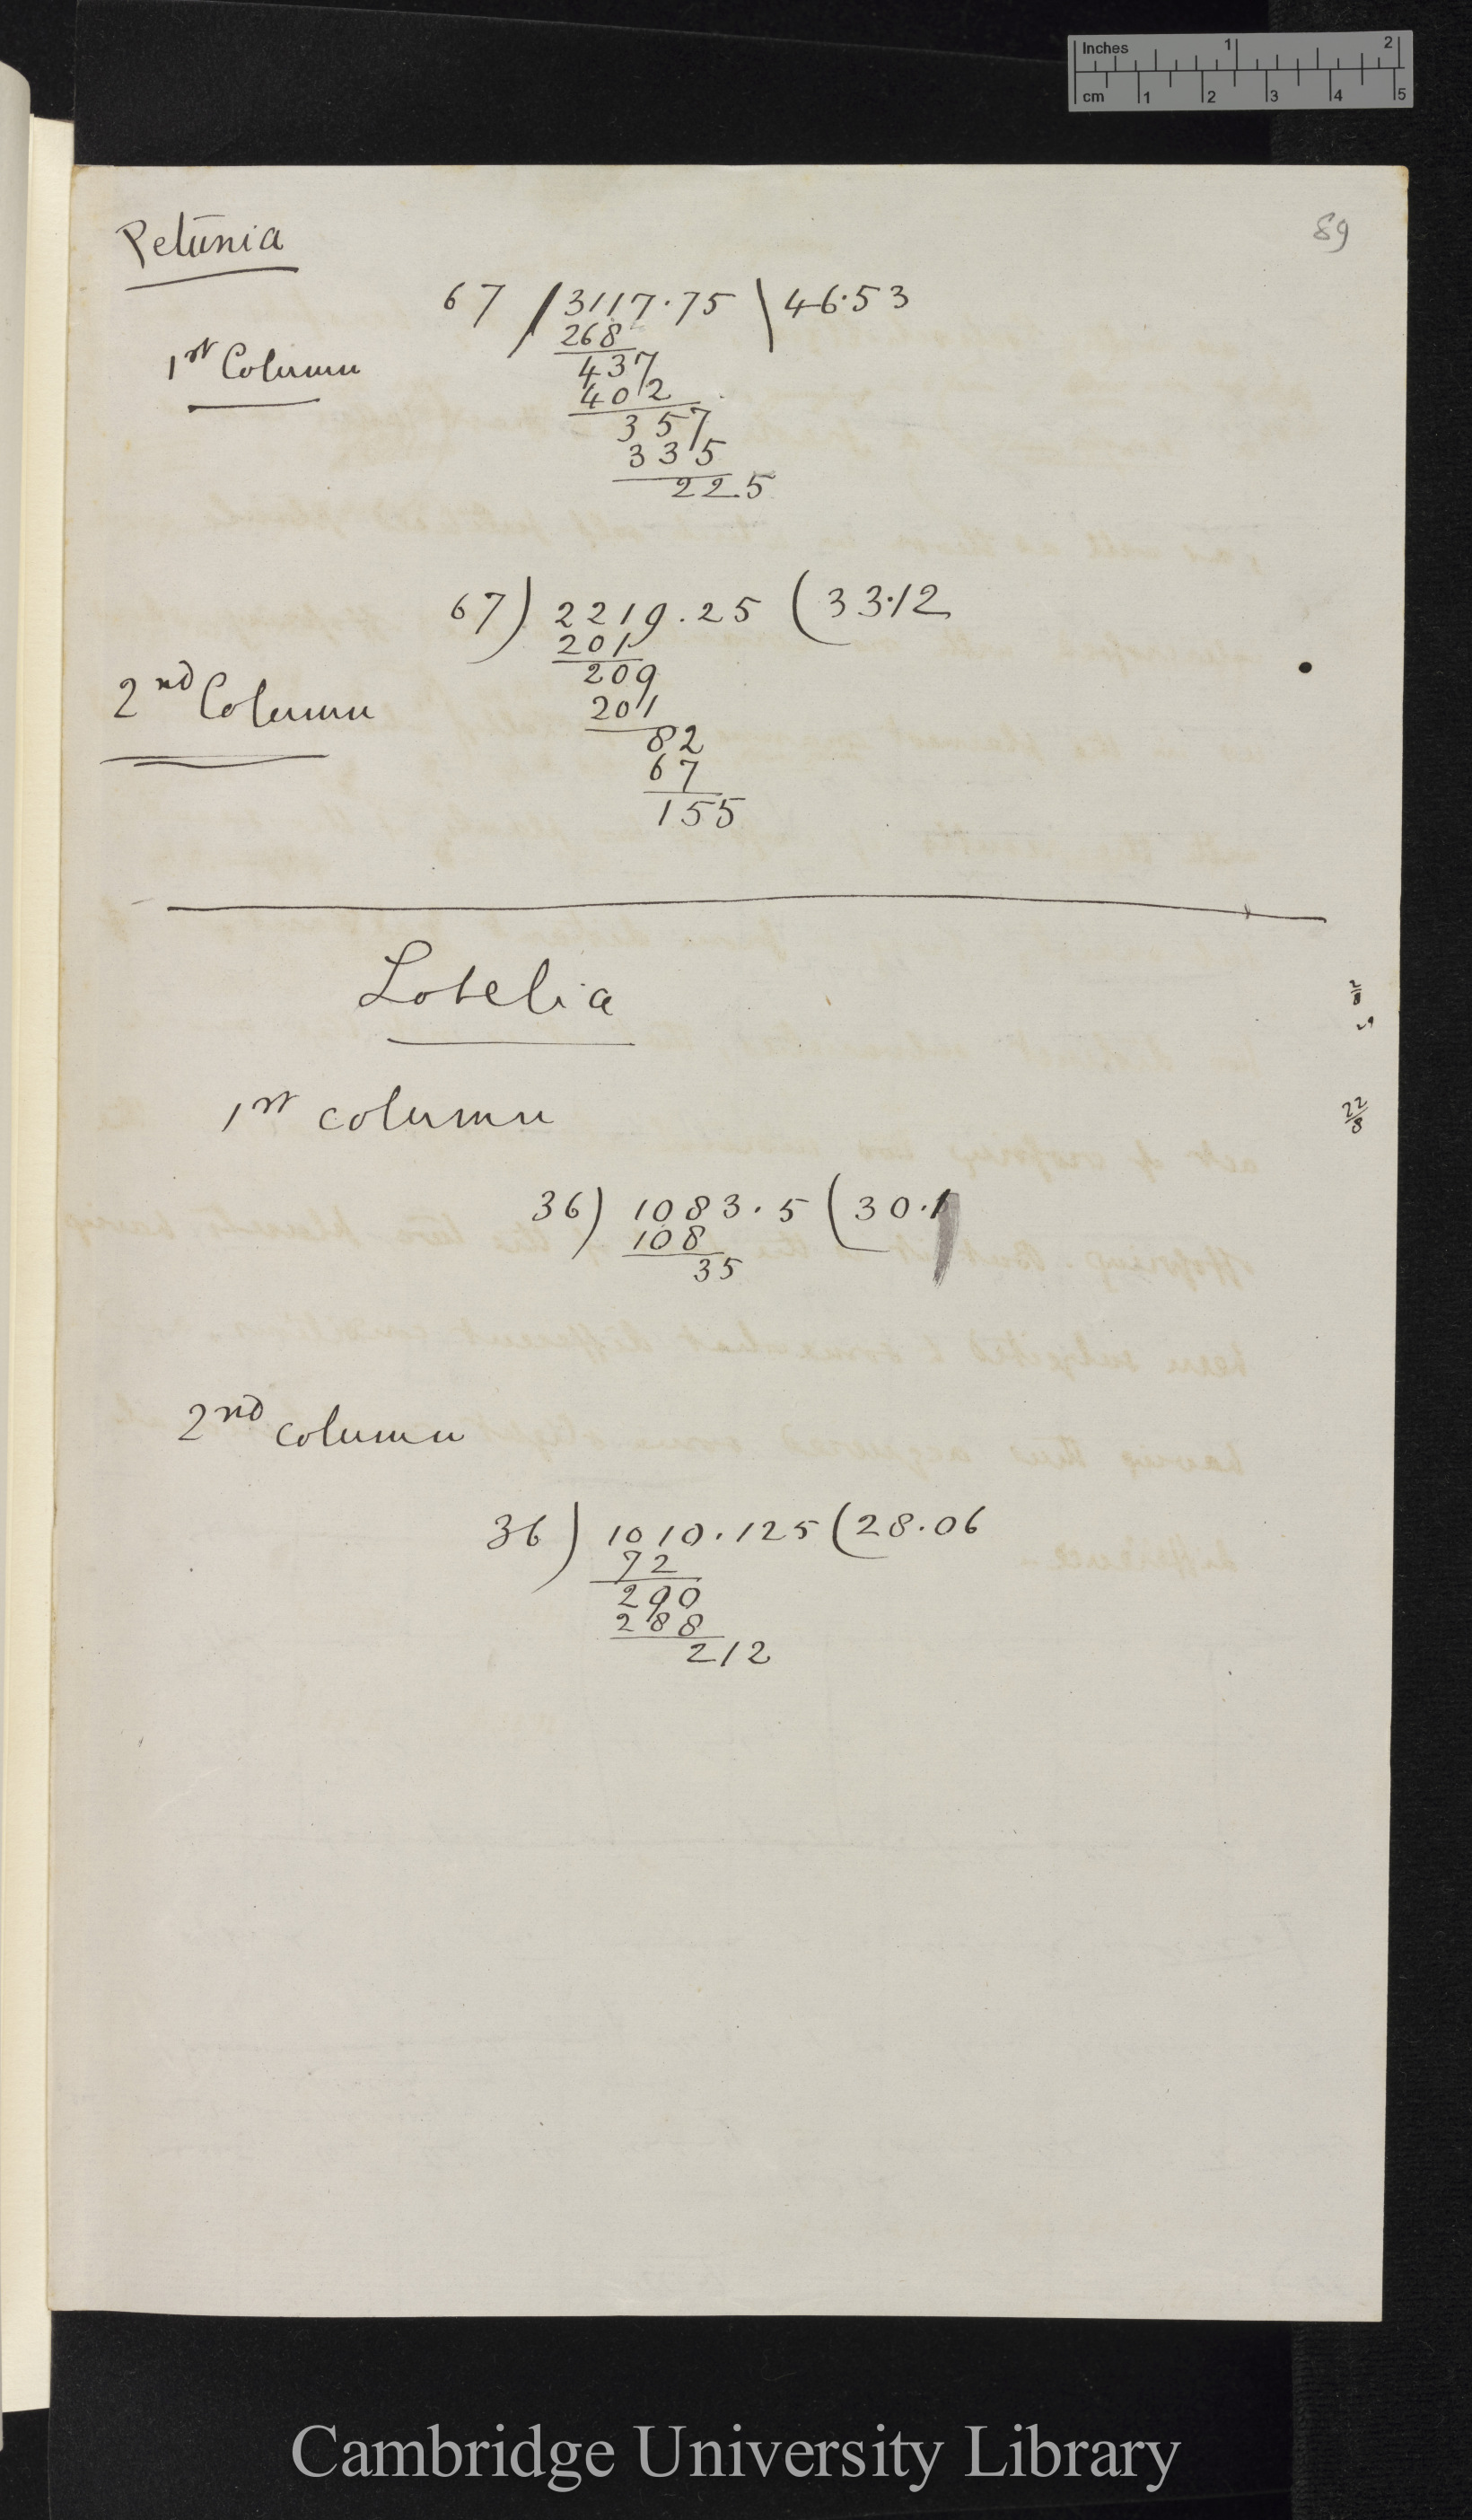 Inches 1 2
cm 1 2 3 4 5
89
Petunia
67 /3117.75 \46.53
1st Column
268
437
402
357
335
225
67) 2219.25 (33.12
201
209
2nd Column
201
82
67
155
Lobelia
2/8
1st column
22/8
36) 1083.5 (30.1
108
35
2nd column
36) 1010.125 (28.06
72
290
288
212
Cambridge University Library